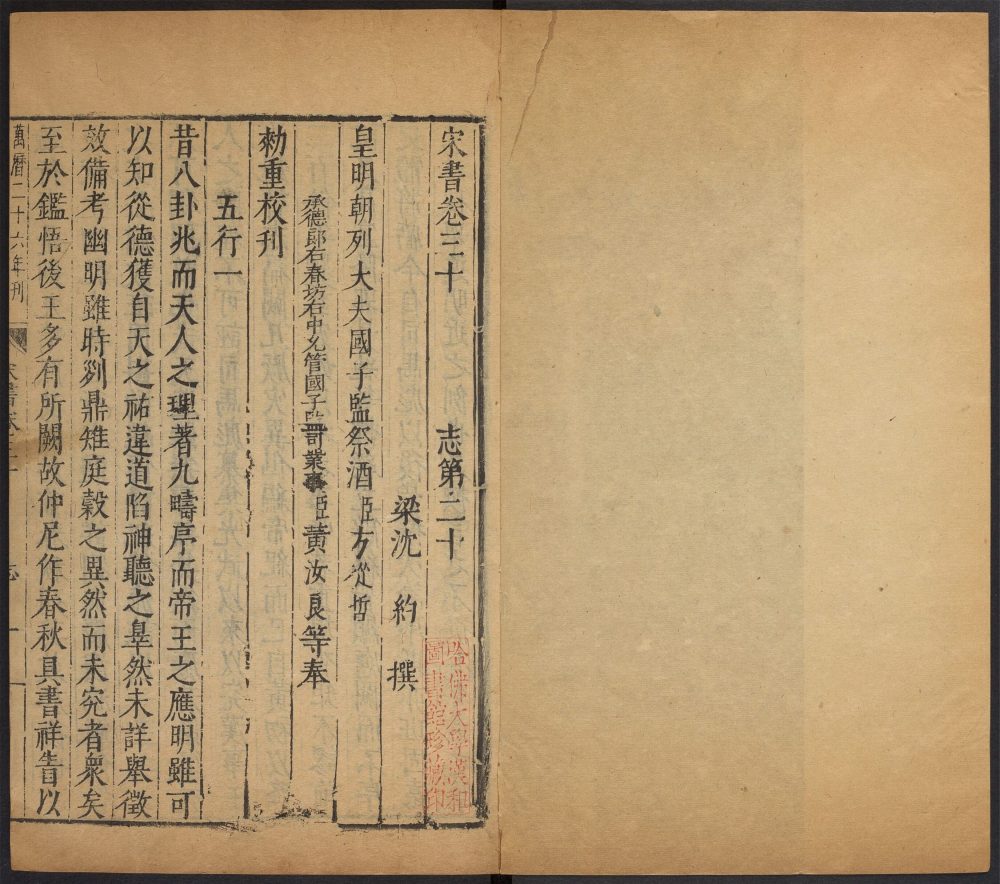 宋書卷三十 志第二十
梁沈 約 撰
皇明朝列大夫國子監祭酒臣方從哲
承德郎右春坊右中允管國子監司業事臣黃汝良等奉
勑重校刊
五行一
昔八卦兆而天人之理著九疇序而帝王之應明雖可
以知從德獲自天之祐違道陷神聽之辠然未詳舉徵
效備考幽明雖時列鼎雉庭榖之異然而未究者衆矣
至於鑑悟後王多有所闕故仲尼作春秋具書祥眚以
萬曆二十六年刊
志 一
哈佛大學漢和
圖書館珍藏印